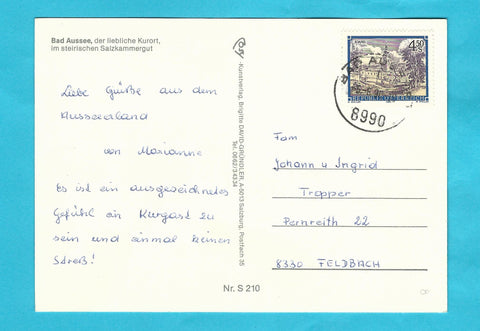 Bad Aussee, der liebliche Kurort,
im steirischen Salzkammergut
Liebe Grüße aus dem
Ausseerland
von Marianne
Es ist ein ausgezeichnetes
Gefühl ein Kurgast zu
sein und einmal keinen
Streß!
Kunstverlag, Brigitte DAVID-GRÜNDLER, A-5013 Salzburg, Postfach 35
Tel. 0662/34334
Nr. S 210
4.50
REPUBLIK ÖSTERREICH
BAD AUSSEE
8990
Fam
Johann u Ingrid
Tropper
Pernreith 22
8330 FELDBACH